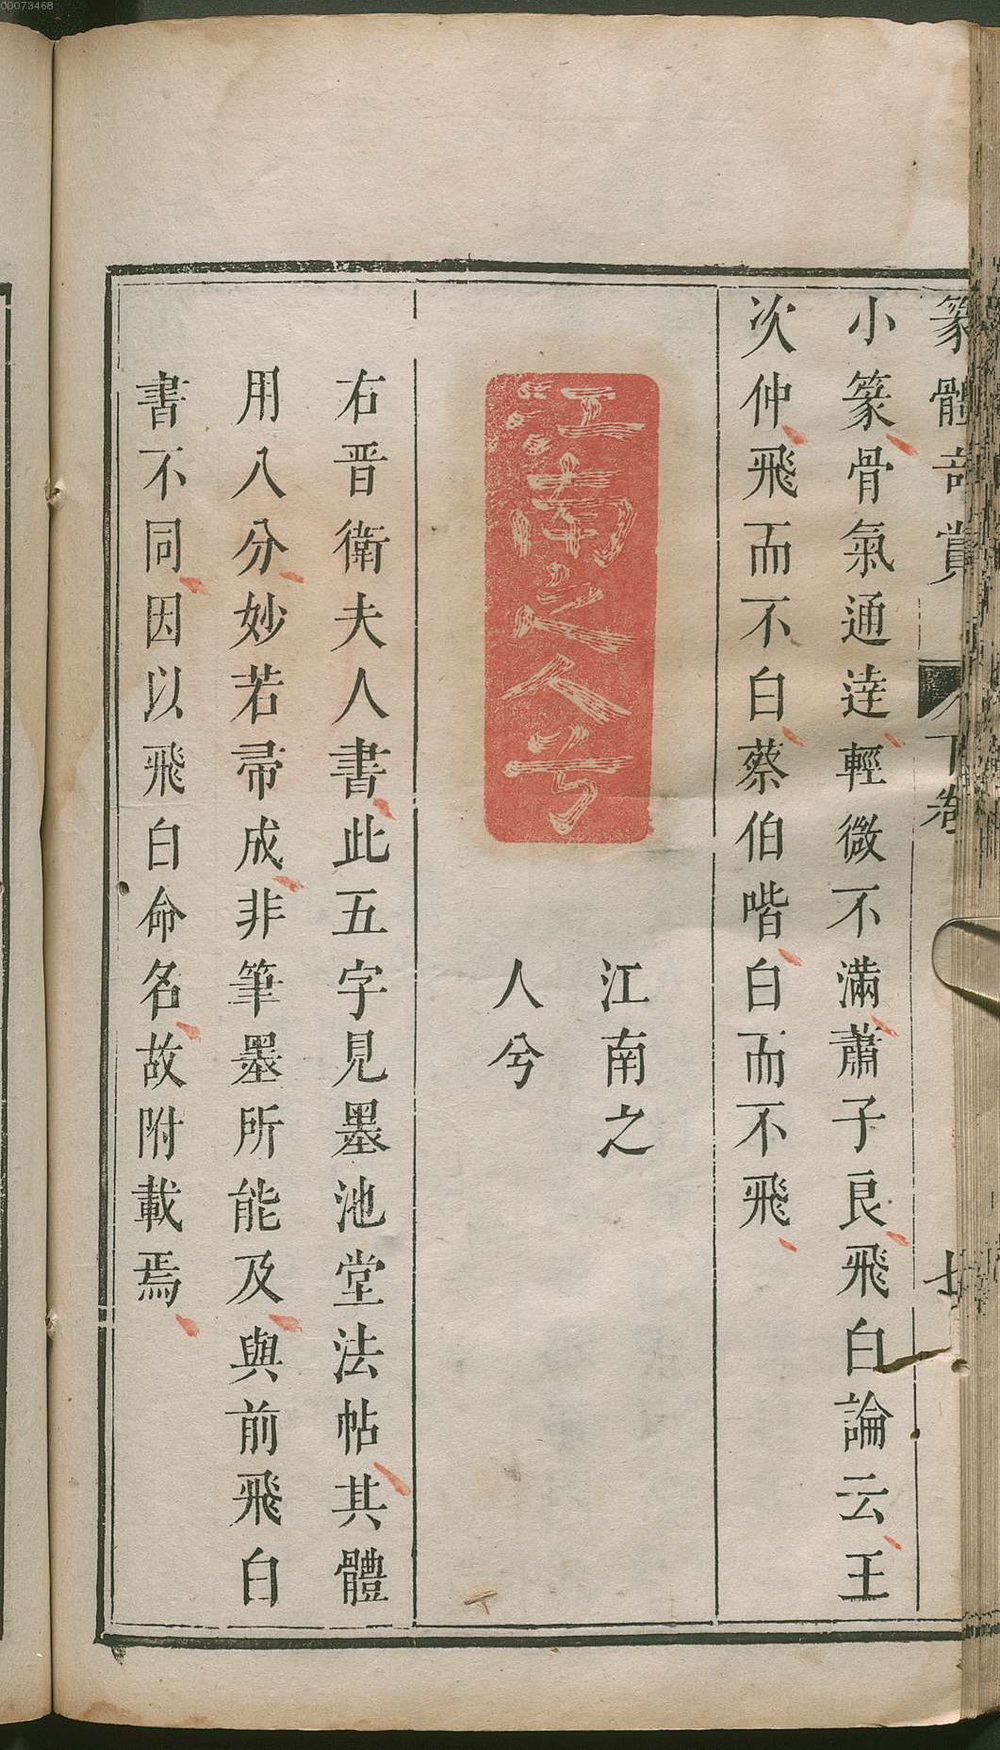 00073468
篆體奇賞
下卷
小篆骨氣通達輕微不滿蕭子良飛白論云王
次仲飛而不白蔡伯喈白而不飛
江南之人兮
江南之
人兮
右晉衛夫人書此五字見墨池堂法帖其體
用八分妙若帚成非筆墨所能及與前飛白
書不同因以飛白命名故附載焉